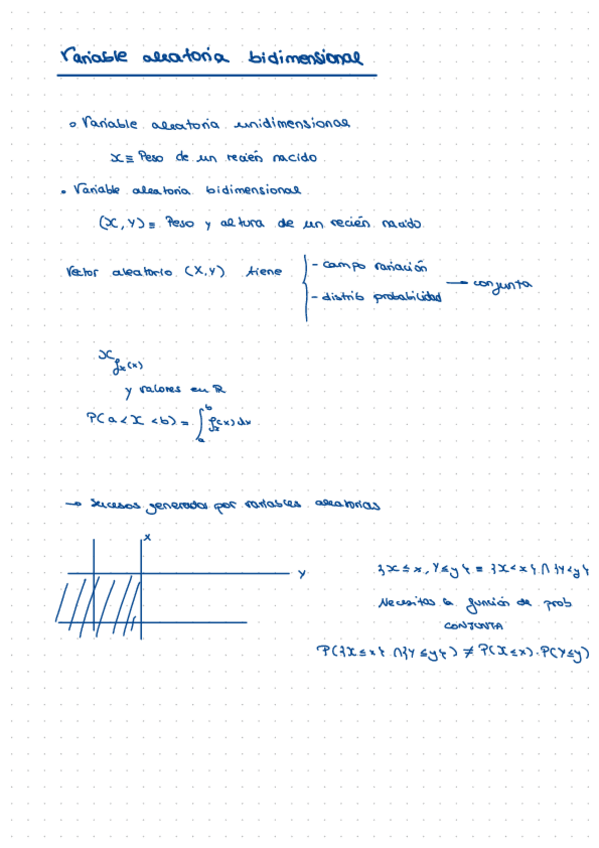 Variable aleatoria bidimensional
Variable aleatoria unidimensional
X ≡ Peso de un recién nacido
Variable aleatoria bidimensional
(X, Y) ≡ Peso y altura de un recién nacido
Vector aleatorio (X, Y) tiene
- campo variación
- distrib probabilidad
→ conjunta
X
fx(x)
y valores en R
P(a < X < b) = ∫ₐᵇ fx(x) dx
→ Sucesos generados por variables aleatorias
X
Y
{X ≤ x, Y ≤ y} = {X < x} ∩ {Y < y}
Necesitas la función de prob
CONJUNTA
P({X ≤ x} ∩ {Y ≤ y}) ≠ P(X ≤ x) · P(Y ≤ y)